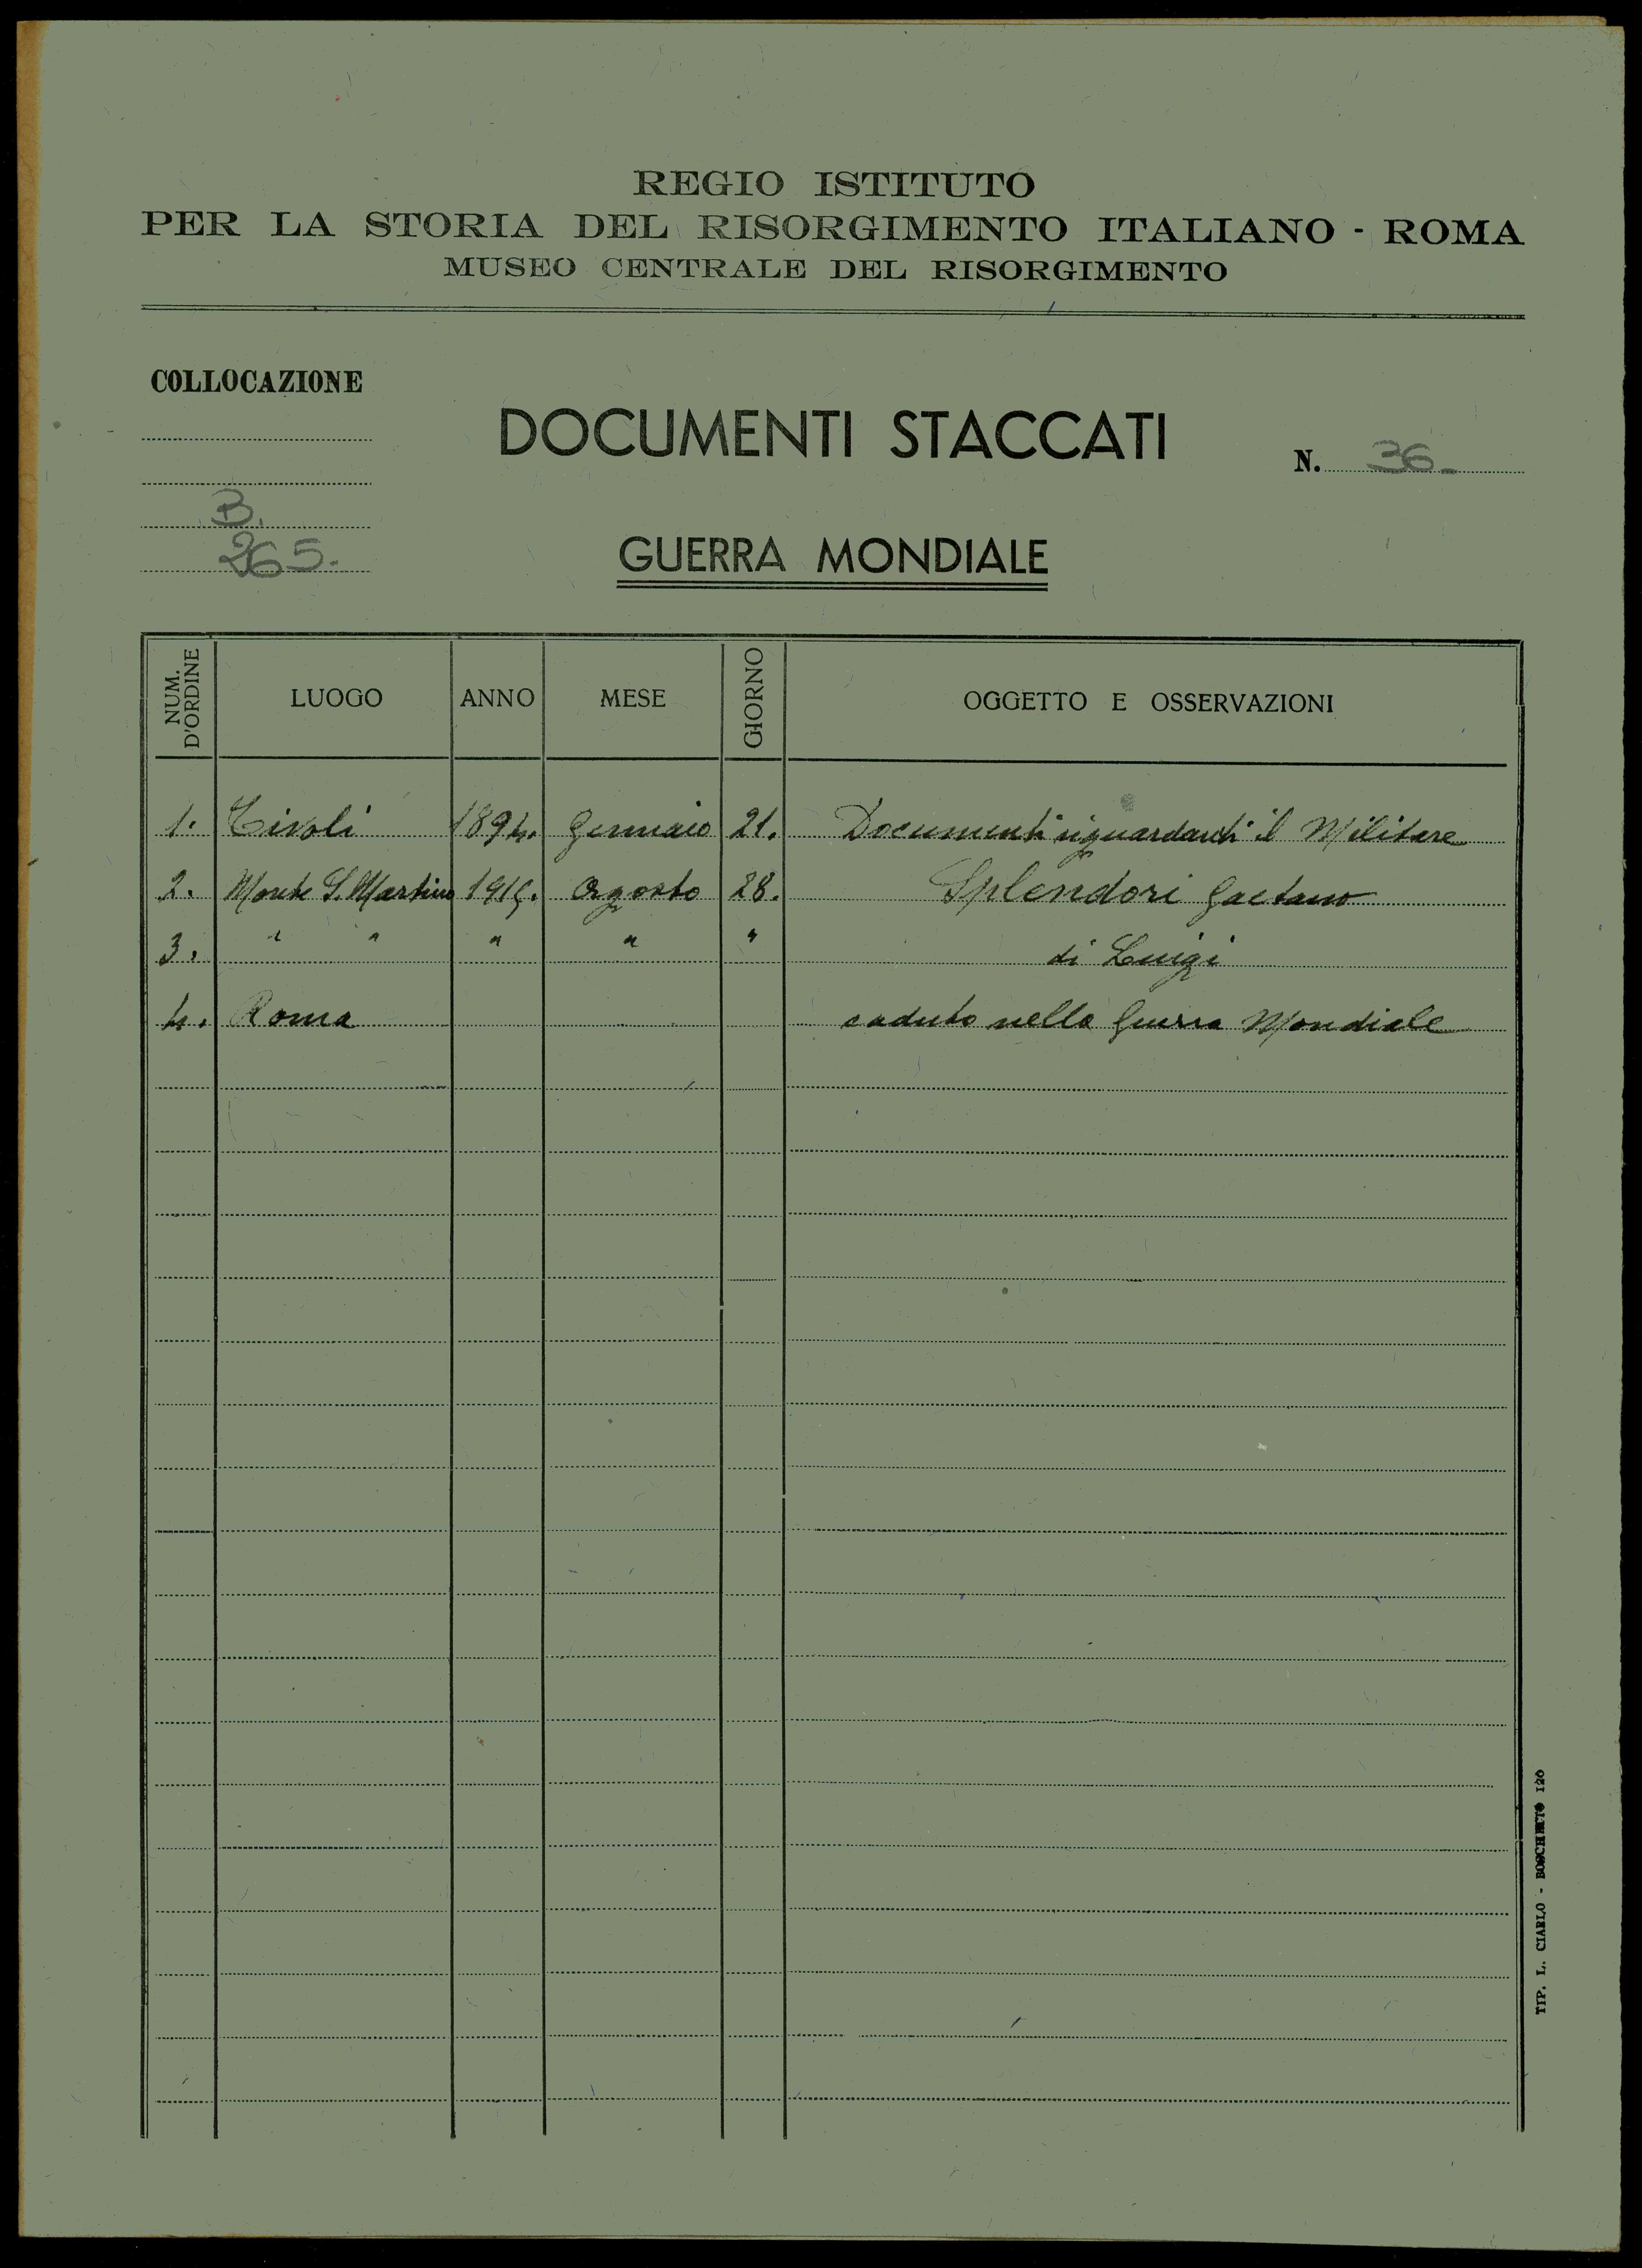 REGIO ISTITUTO
PER LA STORIA DEL RISORGIMENTO ITALIANO - ROMA
MUSEO CENTRALE DEL RISORGIMENTO
COLLOCAZIONE
B.
265.
DOCUMENTI STACCATI
N. 36.
GUERRA MONDIALE
NUM. D'ORDINE LUOGO ANNO MESE GIORNO OGGETTO E OSSERVAZIONI
1. Tivoli 1894. Gennaio 21. Documenti riguardanti il Militare
2. Monte S. Martino 1915. Agosto 28. Splendori Gaetano
3. " " " " " di Luigi
4. Roma caduto nella Guerra Mondiale
TIP. L. CIARLO - BOSCHETTO 120